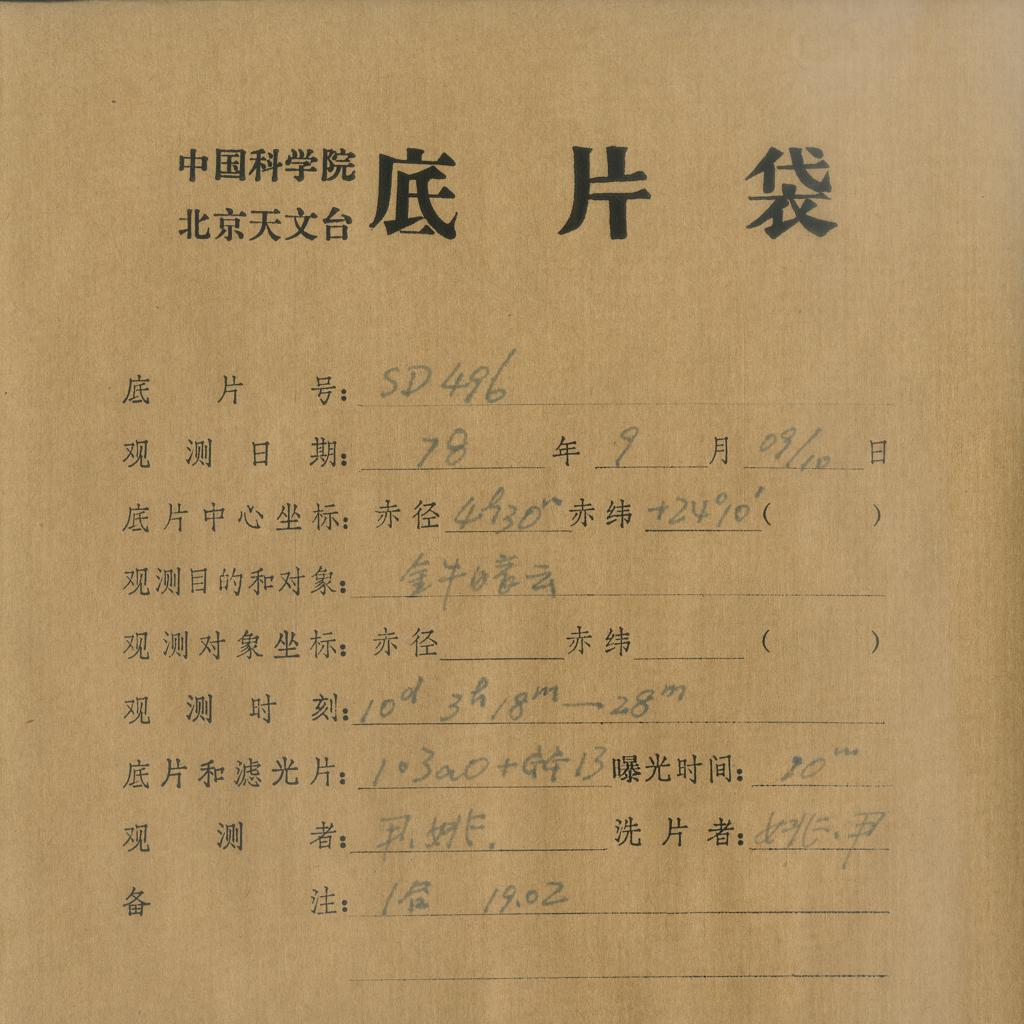 中国科学院
北京天文台
底片袋
底片号: SD 496
观测日期: 78 年 9 月 09/10 日
底片中心坐标: 赤径 4h30m 赤纬 +24°10′ ( )
观测目的和对象: 金牛暗云
观测对象坐标: 赤径 赤纬 ( )
观测时刻: 10d 3h18m—28m
底片和滤光片: 103aO+GG13 曝光时间: 10m
观测者: 尹.姚. 洗片者: 姚.尹
备注: 19.02